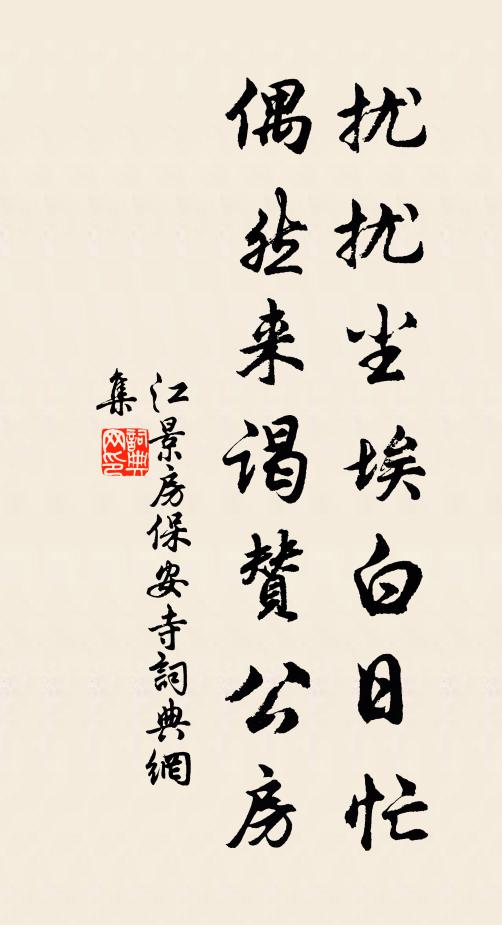 扰扰尘埃白日忙
偶然来谒赞公房
江景房保安寺詞典網
集
詞典网印